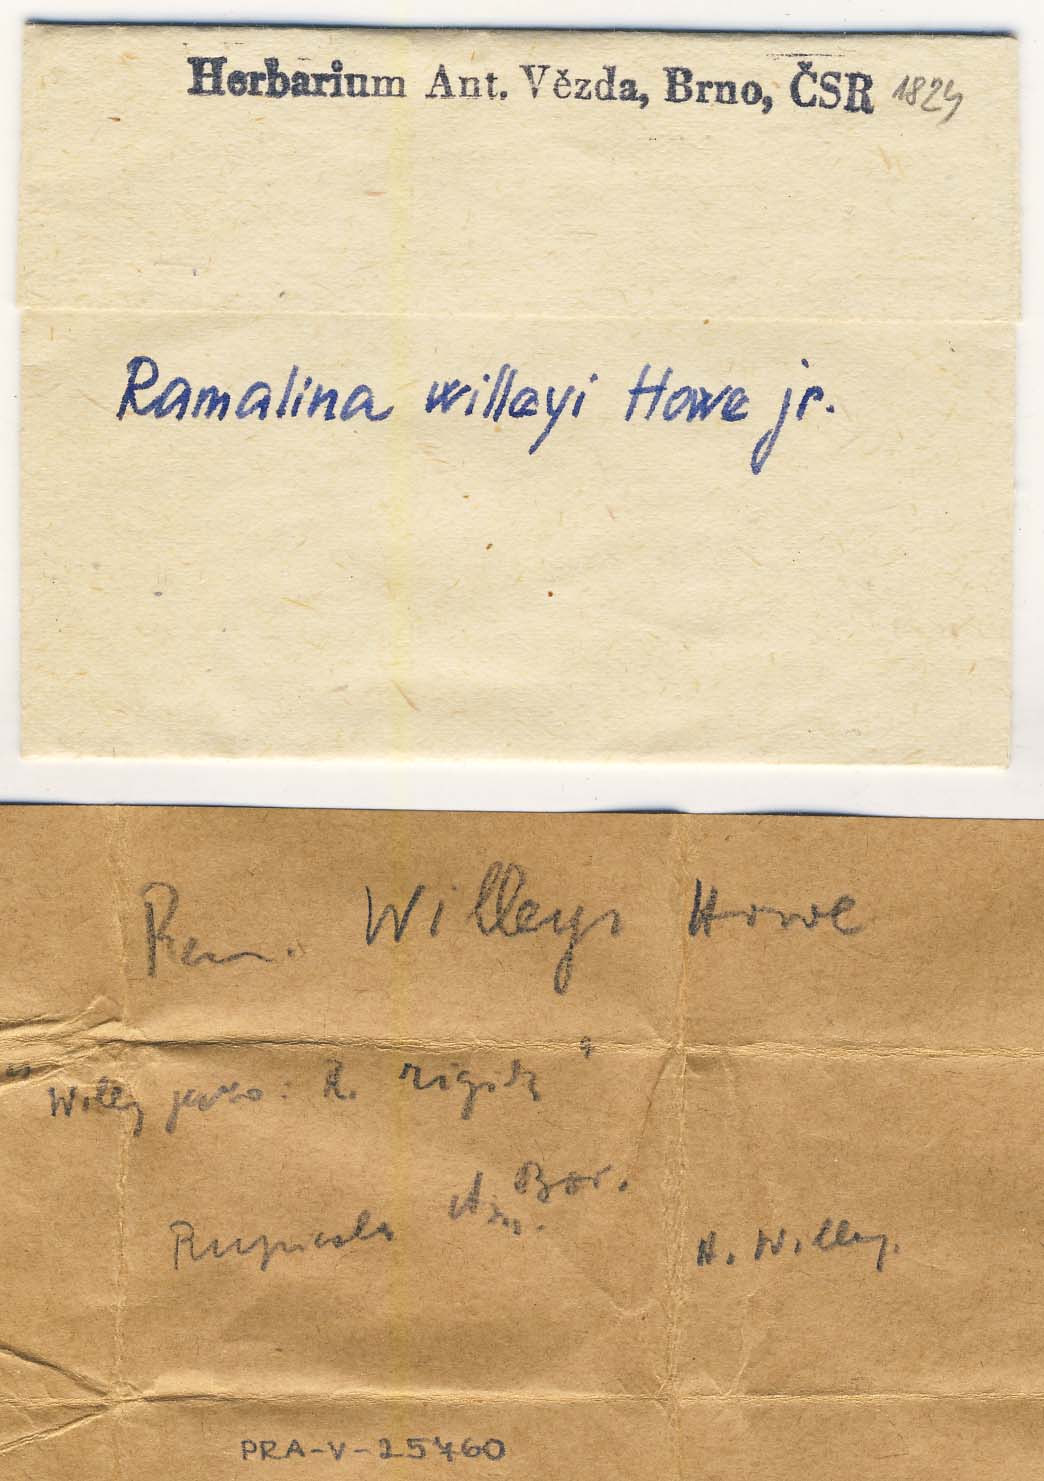 Herbarium Ant. Vězda, Brno, ČSR 1824
Ramalina willeyi Howe jr.
Ram. Willeyi Howe
"Willey jako: R. rigida"
Am. Bor.
Rupicola H. Willey.
PRA-V-25460